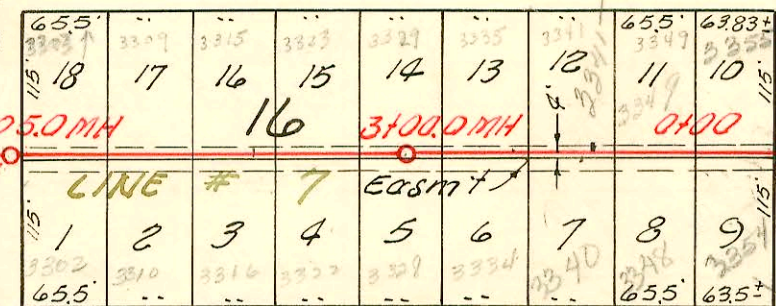 65.5' " " " " " " 65.5' 63.83±
3309 3315 3323 3329 3335 3341 3349 3355
115' 18 17 16 15 14 13 12 11 10 115'
3341
3349
5.0 MH 16 3+00.0 MH 0+00
LINE # 7 Easm't
115' 1 2 3 4 5 6 7 8 9 115'
3302 3310 3316 3322 3328 3334 3340 3348 3354
65.5' " " " " " " 65.5' 63.5±